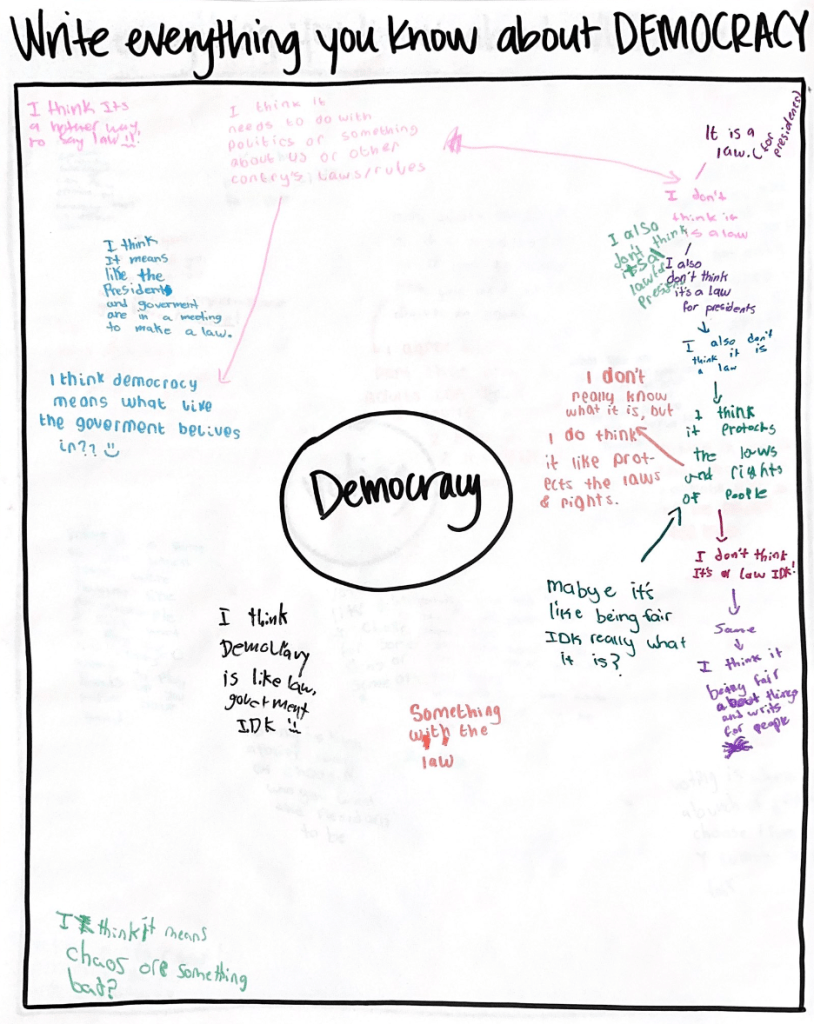 Write everything you know about DEMOCRACY
I think Its
a nother way
to say law!!
I think it
needs to do with
politics or something
about us or other
contrys; laws/rules
It is a
law. (for presidents)
I don't
think it
is a law
I also
don't think
it's a
law for
I also
don't think
it's a law
for presidents
I also don't
think it is
a law
I think
It means
like the
President
and goverment
are in a meeting
to make a law.
I think democracy
means what like
the goverment belives
in??
I don't
really know
what it is, but
I do think
it like prot-
ects the laws
& rights.
I think
it protachs
the laws
and rights
of people
Democracy
I don't think
It's a law IDK!
mabye it's
like being fair
IDK really what
it is?
Same
I think it
being fair
about things
and writs
for people
I think
Democracy
is like law,
goverment
IDK
Something
with the
law
I think it means
chaos ore something
bad?